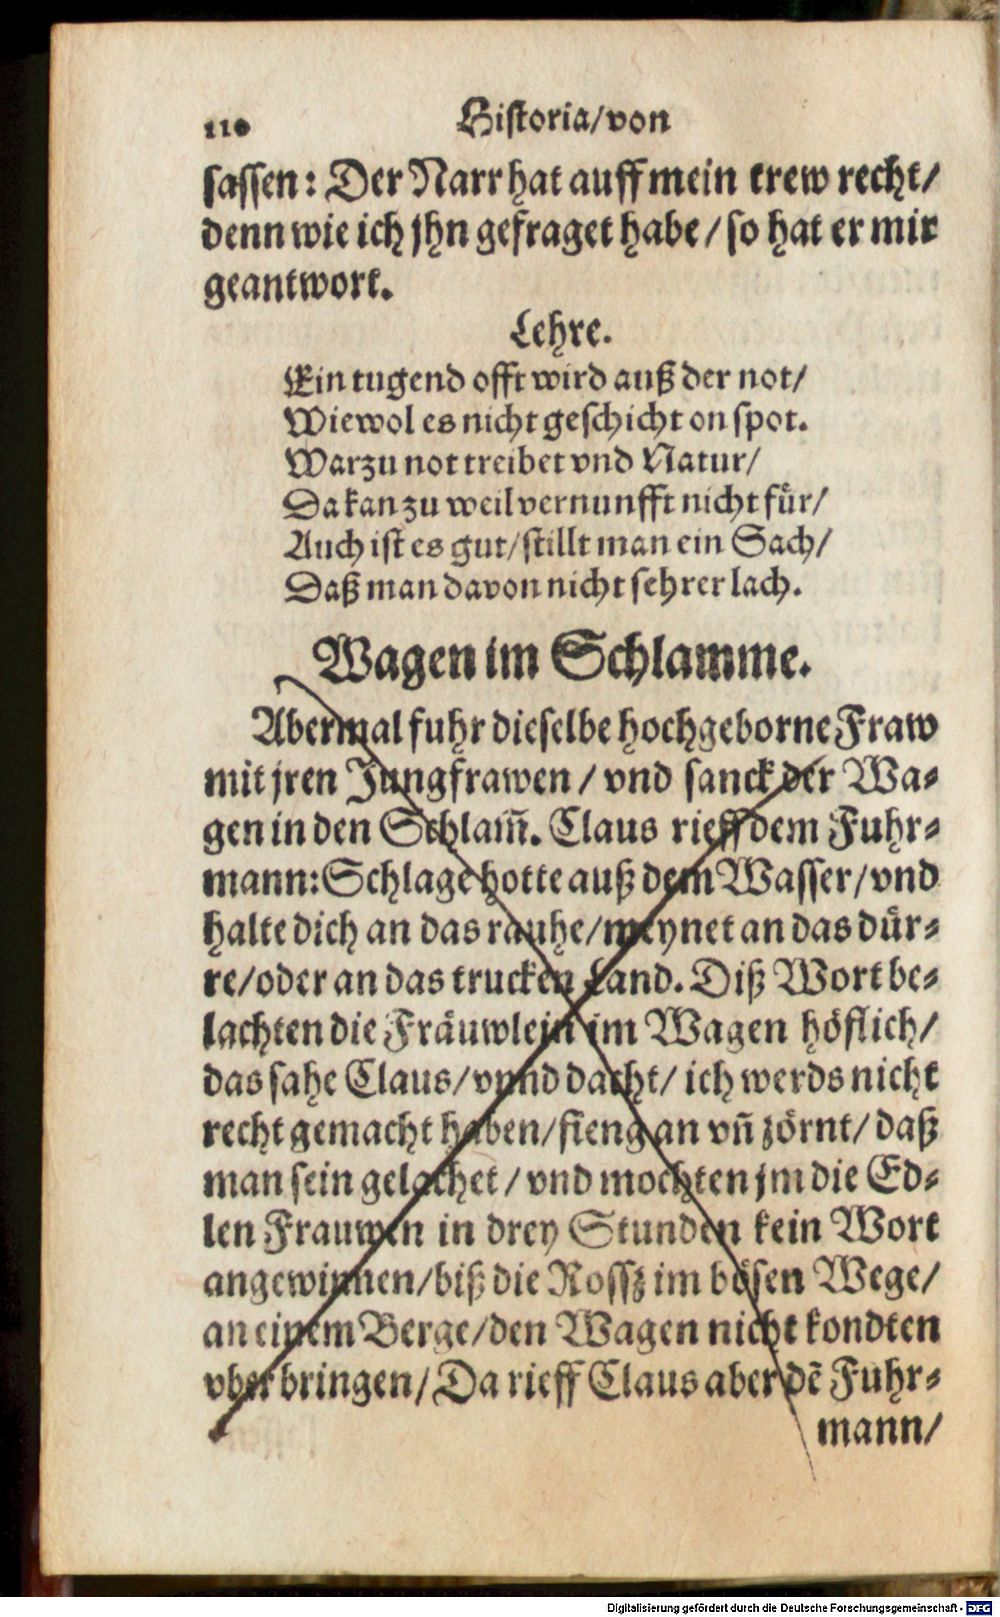 110 Historia/von
sassen: Der Narr hat auff mein trew recht/
denn wie ich jhn gefraget habe/so hat er mir
geantwort.
Lehre.
Ein tugend offt wird auß der not/
Wiewol es nicht geschicht on spot.
Warzu not treibet vnd Natur/
Da kan zu weil vernunfft nicht für/
Auch ist es gut/stillt man ein Sach/
Daß man davon nicht sehrer lach.
Wagen im Schlamme.
Abermal fuhr dieselbe hochgeborne Fraw
mit jren Jungfrawen/vnd sanck der Wa-
gen in den Schlam̃. Claus rieff dem Fuhr-
mann: Schlage hotte auß dem Wasser/vnd
halte dich an das rauhe/meynet an das dür-
re/oder an das trucken Land. Diß Wort be-
lachten die Fräuwlein im Wagen höflich/
das sahe Claus/vnnd dacht/ich werds nicht
recht gemacht haben/fieng an vñ zörnt/daß
man sein gelachet/vnd mochten jm die Ed-
len Frauwen in drey Stunden kein Wort
angewinnen/biß die Rossz im bösen Wege/
an einem Berge/den Wagen nicht kondten
vber bringen/Da rieff Claus aber dẽ Fuhr-
mann/
Digitalisierung gefördert durch die Deutsche Forschungsgemeinschaft - DFG